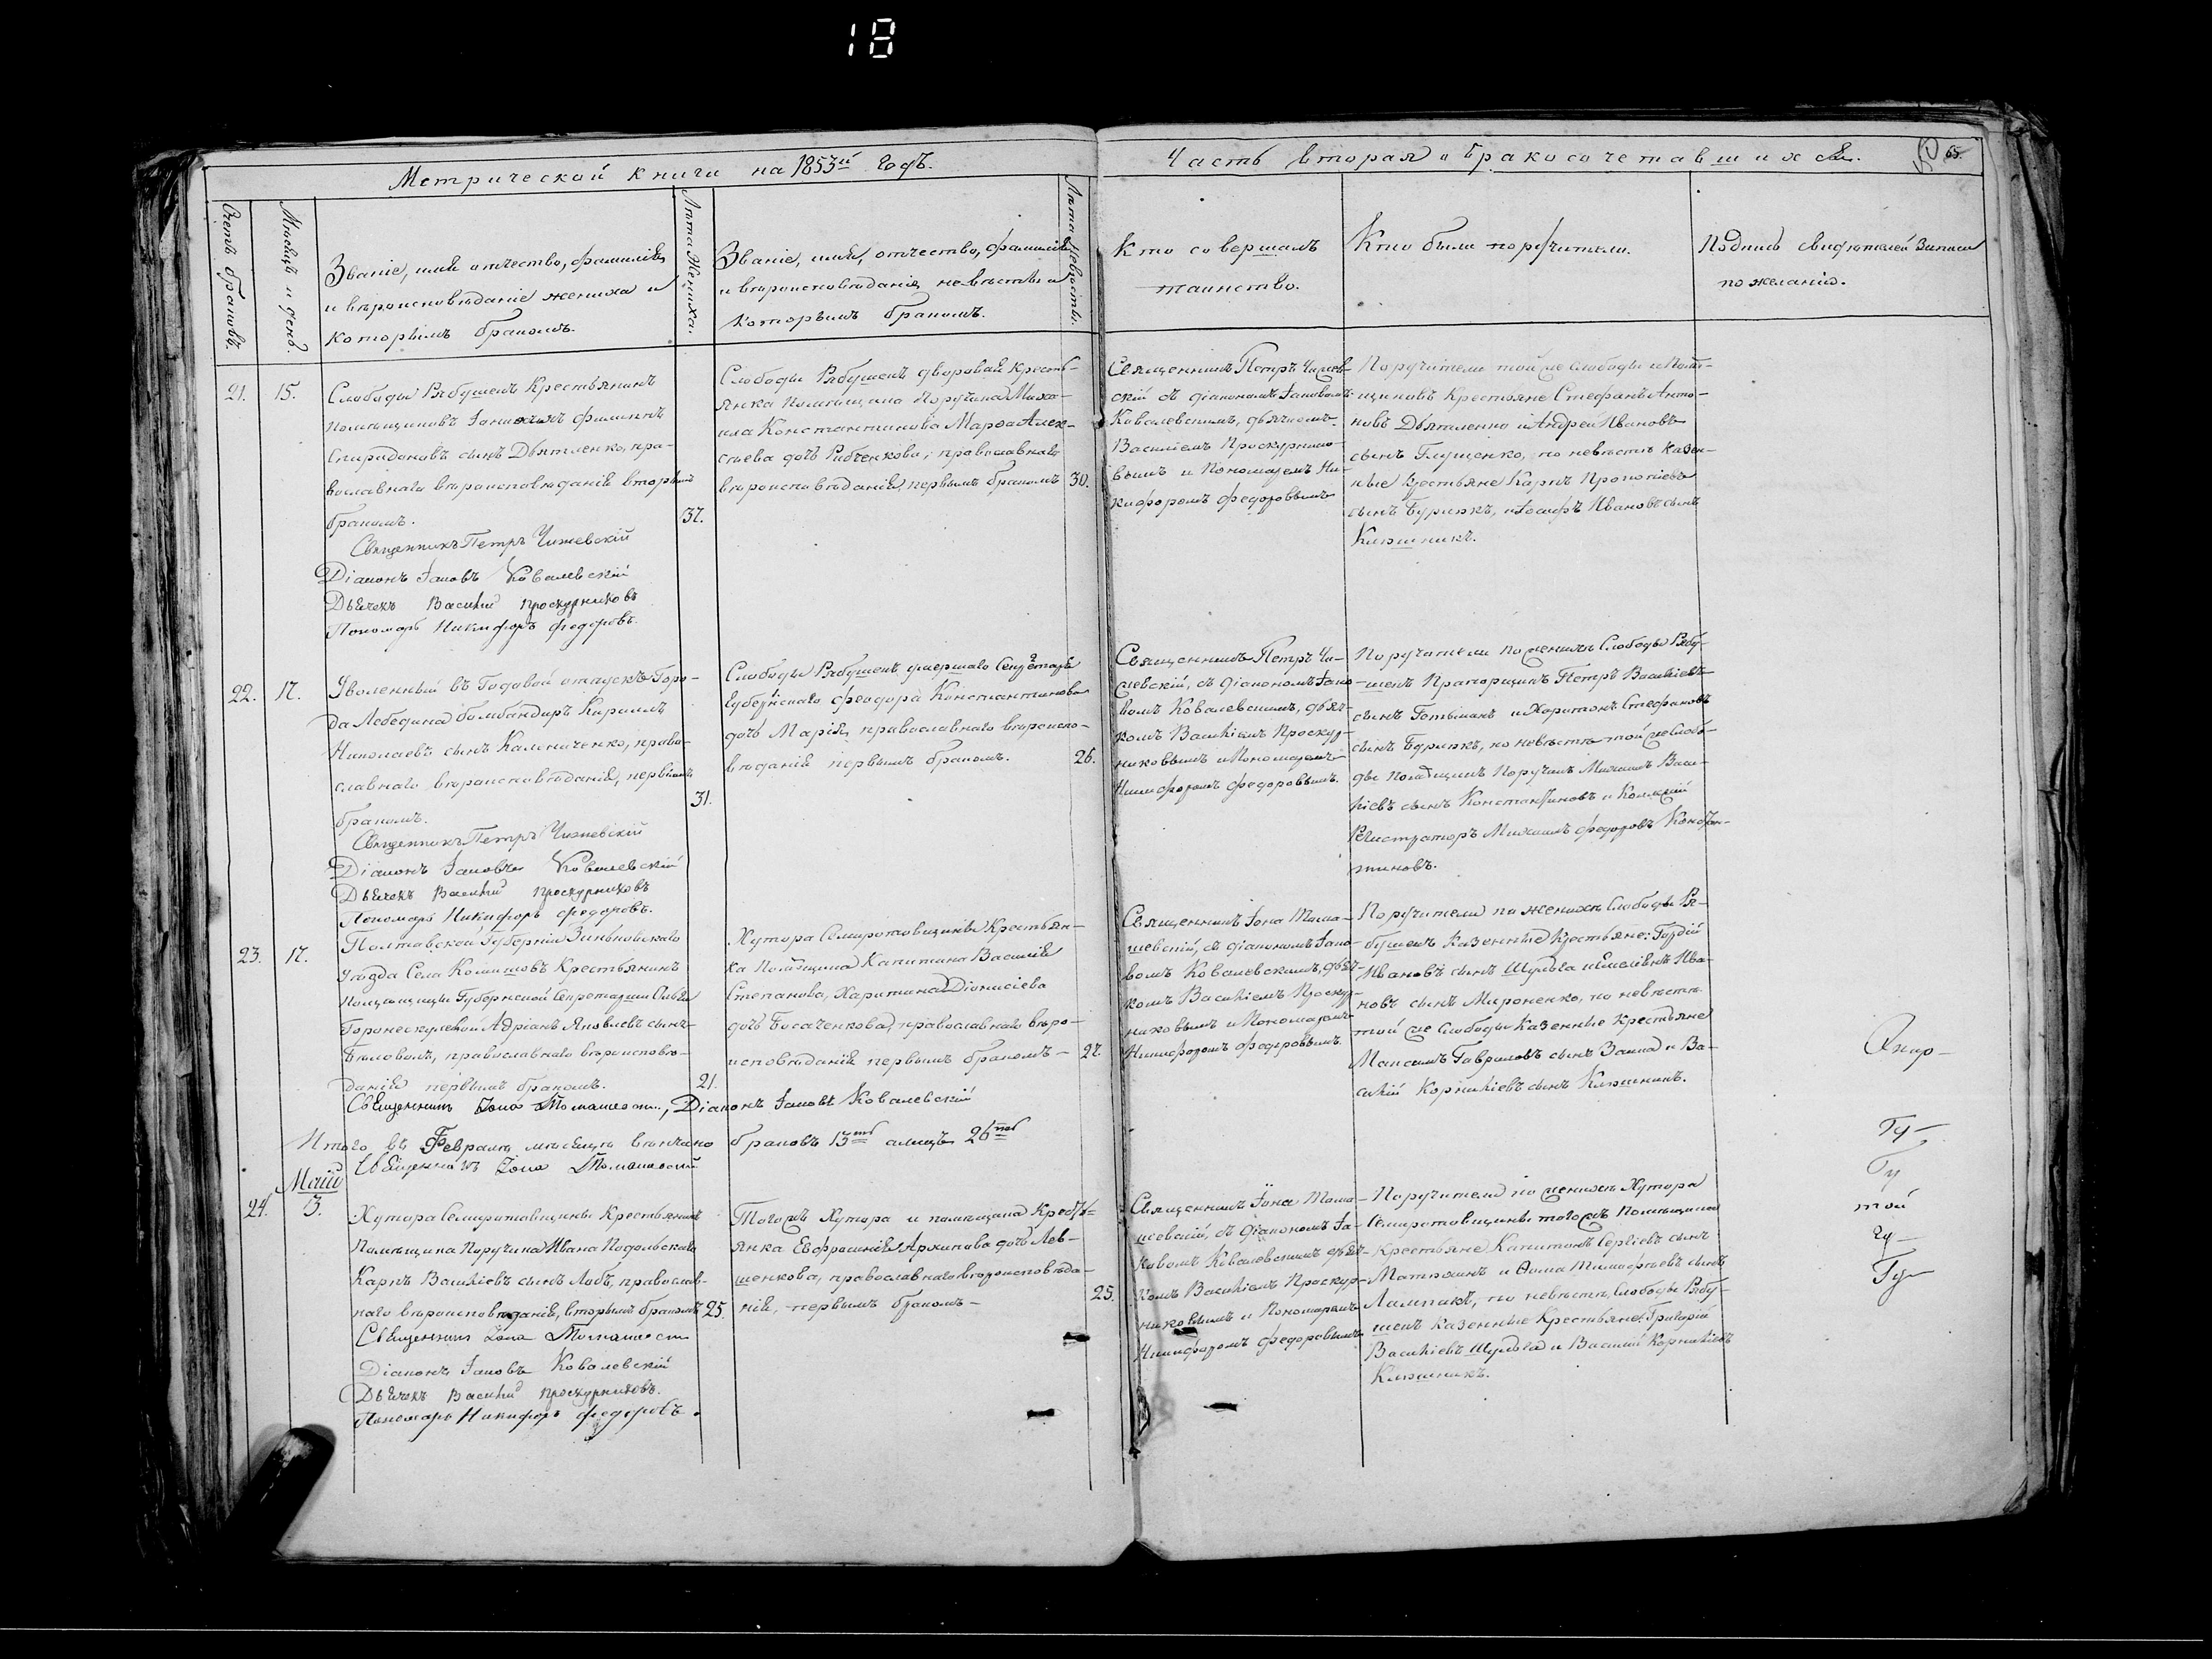 18
Метрической книги на 1853й годъ.
Часть вторая о бракосочетавшихся.
65.
Счетъ браковъ.
Мѣсяцъ и день.
Званіе, имя отчество, фамилія
и вѣроисповѣданіе жениха и
которымъ бракомъ.
Лѣта Жениха.
Званіе, имя, отчество, фамилія
и вѣроисповѣданія невѣсты и
которымъ бракомъ.
Лѣта Невѣсты.
Кто совершалъ
таинство.
Кто были поручители.
Подпись свидѣтелей записи
по желанію.
21.
15.
Слободы Рябушекъ Крестьянинъ
помѣщиковъ филинъ
Спиридоновъ сынъ Дѣятленко, пра-
вославнаго вѣроисповѣданія вторымъ
бракомъ.
37.
Священникъ Петръ Чижевскій
Діаконъ Іаковъ Ковалевскій
Дьячекъ Василій Проскурниковъ
Пономарь Никифоръ Федоровъ.
Слободы Рябушекъ дворовая кресть-
янка помѣщика Поручика Миха-
ила Константинова Марѳа Алек-
сѣева дочь Рябченкова, православнаго
вѣроисповѣданія, первымъ бракомъ
30.
Священникъ Петръ Чижев-
скій съ діакономъ Іаковомъ
Ковалевскимъ, дьячкомъ
Василіемъ Проскурнико-
вымъ и Пономаремъ Ни-
кифоромъ Федоровымъ
Поручители той же слободы помѣ-
щиковъ Крестьяне Стефанъ Анто-
новъ Дѣятленко и Андрей Ивановъ
сынъ Глущенко, по невѣстѣ казен-
ные крестьяне Карпъ Прокопіевъ
сынъ Бурикъ, и Іосифъ Ивановъ сынъ
Клюшникъ.
22.
17.
Уволенный въ Годовой отпускъ Горо-
да Лебедина бомбандиръ Кириллъ
Николаевъ сынъ Калениченко, право-
славнаго вѣроисповѣданія, первымъ
бракомъ.
31.
Священникъ Петръ Чижевскій
Діаконъ Іаковъ Ковалевскій
Дьячекъ Василій Проскурниковъ
Пономарь Никифоръ Федоровъ.
Слободы Рябушекъ, умершаго Секретаря
Губернскаго Феодора Константинова
дочь Марія, православнаго вѣроиспо-
вѣданія первымъ бракомъ.
26.
Священникъ Петръ Чи-
жевскій, съ діакономъ Іако-
вомъ Ковалевскимъ, дьяч-
комъ Василіемъ Проскур-
никовымъ и Пономаремъ
Никифоромъ Федоровымъ.
Поручители по женихѣ Слободы Рябу-
шекъ Прапорщикъ Петръ Василіевъ
сынъ Гетьманъ и Харитонъ Стефановъ
сынъ Бурикъ, по невѣстѣ той же слобо-
ды помѣщикъ Поручикъ Михаилъ Васи-
ліевъ сынъ Константиновъ и Колежскій
Регистраторъ Михаилъ Федоровъ Констан-
тиновъ.
23.
17.
Полтавской Губерніи Зиньковскаго
уѣзда Села Крестьянинъ
помѣщицы Губернской Секретарши
Адріанъ Яковлевъ сынъ
православнаго вѣроисповѣ-
данія первымъ бракомъ.
21.
Священникъ Іона Томашевск., Діаконъ Іаковъ Ковалевскій
Хутора Семиротовщины Крестьян-
ка Помѣщика Капитана Василія
Степанова, Харитина Діонисіева
дочь Босаченкова, православнаго вѣро-
исповѣданія первымъ бракомъ
22.
Священникъ Іона Тома-
шевскій, съ діакономъ Іако-
вомъ Ковалевскимъ, дьяч-
комъ Василіемъ Проскур-
никовымъ и Пономаремъ
Никифоромъ Федоровымъ.
Поручители по женихѣ Слободы Ря-
бушекъ казенные крестьяне: Гордій
Ивановъ сынъ Шульга и Ива-
новъ сынъ Мироненко, по невѣстѣ
той же Слободы казенные крестьяне
Максимъ Гавриловъ сынъ Заика и Ва-
силій Корниліевъ сынъ Клюшникъ.
Итого въ Февралѣ мѣсяцѣ вѣнчано браковъ 13ть а лицъ 26ть
Священникъ Іона Томашевскій
Маій
24.
3.
Хутора Семиротовщины Крестьянинъ
Помѣщика Поручика Ивана Подольскаго
Карпъ Василіевъ сынъ Лобъ, православ-
наго вѣроисповѣданія, вторымъ бракомъ
25.
Священникъ Іона Томашевск
Діаконъ Іаковъ Ковалевскій
Дьячекъ Василій Проскурниковъ.
Пономарь Никифоръ Федоровъ.
Тогожъ Хутора и помѣщика Кресть-
янка Евфросинія Архипова дочь Лев-
шенкова, православнаго вѣроисповѣда-
нія, первымъ бракомъ
25.
Священникъ Іона Тома-
шевскій, съ діакономъ Іа-
ковомъ Ковалевскимъ дьяч-
комъ Василіемъ Проскур-
никовымъ и Пономаремъ
Никифоромъ Федоровымъ
Поручители по женихѣ Хутора
Семиротовщины тогожъ Помѣщика
крестьяне Капитонъ Сергіевъ сынъ
Матюхинъ и Ѳома Тимофѣевъ сынъ
по невѣстѣ, Слободы Рябу-
шекъ казенные Крестьяне: Григорій
Василіевъ Шульга и Василій Корниліевъ
Клюшникъ.
Гу
той
Гу